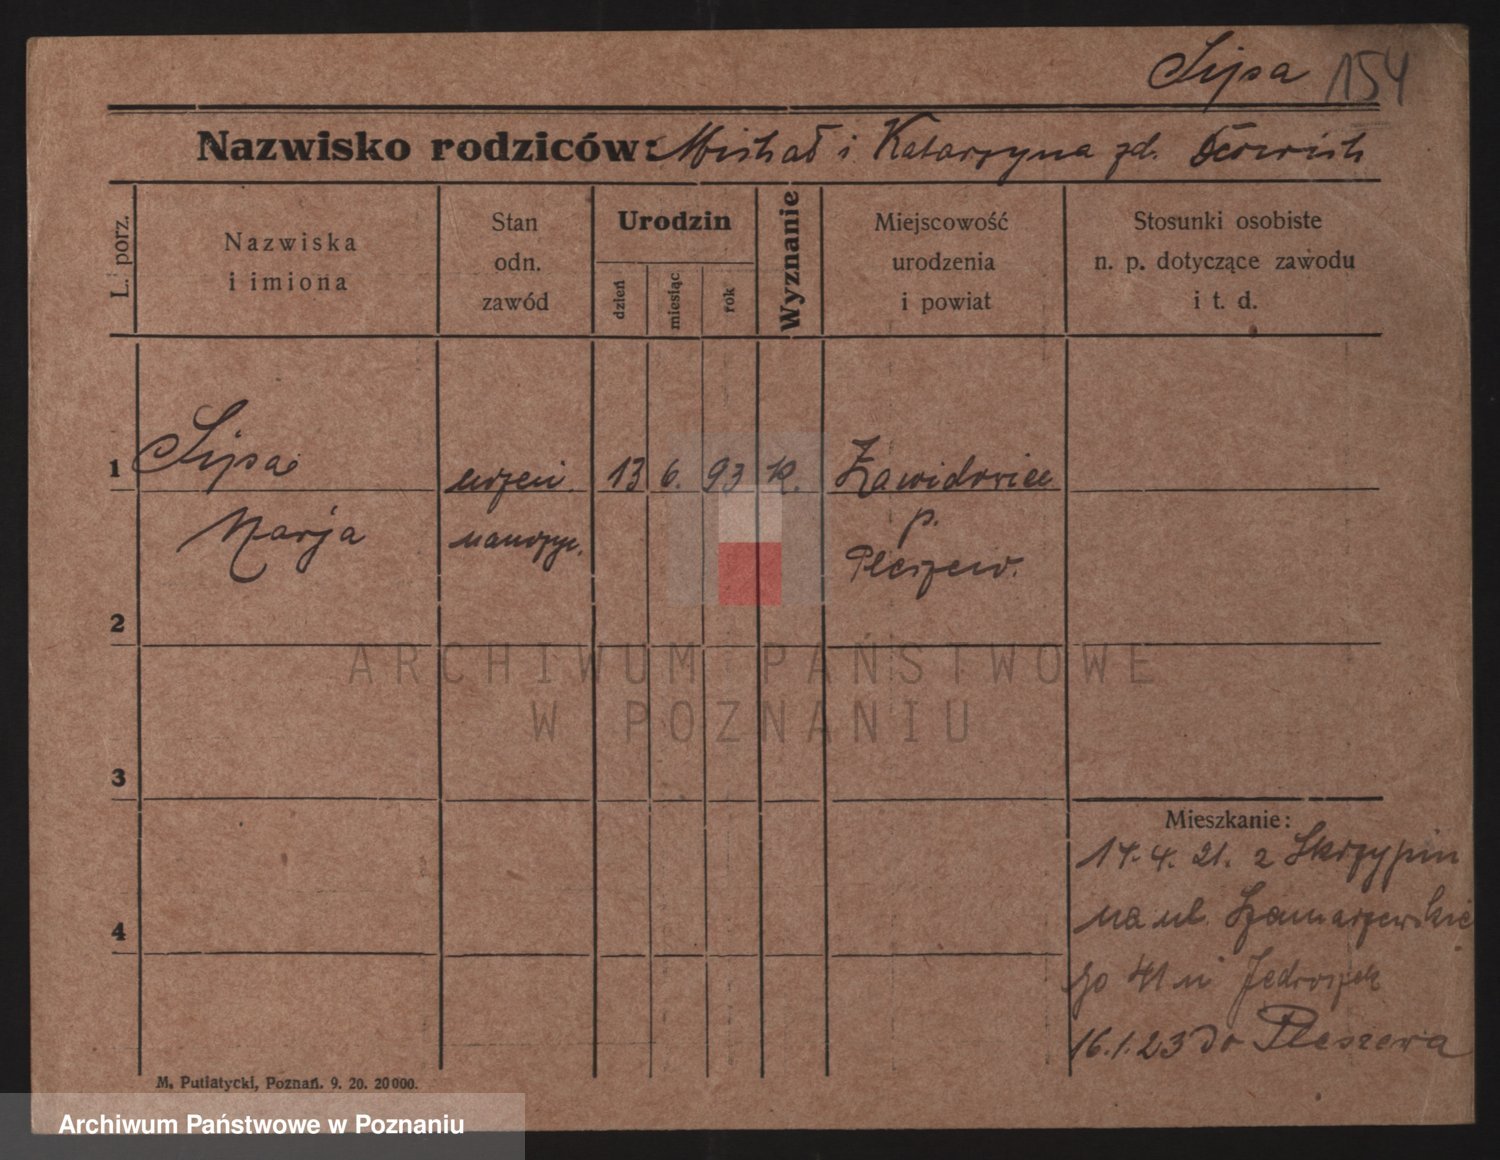 Lipsa 154
Nazwisko rodziców: Michał i Katarzyna zd.
L. porz.
Nazwiska
i imiona
Stan
odn.
zawód
Urodzin
dzień
miesiąc
rok
Wyznanie
Miejscowość
urodzenia
i powiat
Stosunki osobiste
n. p. dotyczące zawodu
i t. d.
1 Lipsa 13 6. 93 k. Zawidovice
Marja nauczyc. p.
Pleszew.
2
3
4
Mieszkanie:
17. 4. 21. z Skrzypin
na ul. Szamarzewskie
go 41 u Jędroszek
16. 1. 23 do Pleszewa
M. Putiatycki, Poznań. 9. 20. 20000.
ARCHIWUM PAŃSTWOWE
W POZNANIU
Archiwum Państwowe w Poznaniu